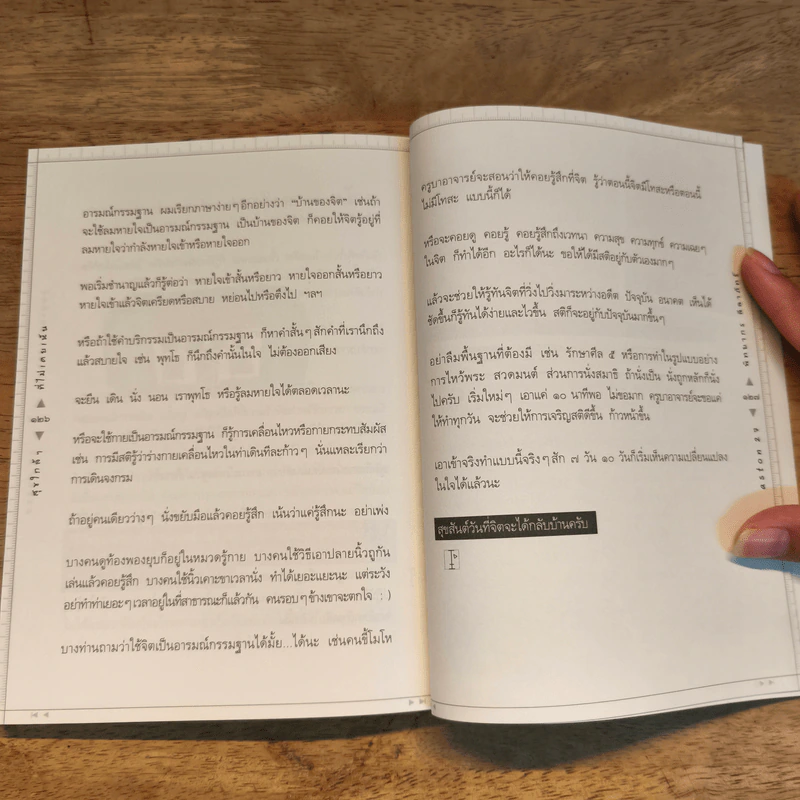 อารมณ์กรรมฐาน ผมเรียกภาษาง่ายๆ อีกอย่างว่า “บ้านของจิต” เช่นถ้า
จะใช้ลมหายใจเป็นอารมณ์กรรมฐาน เป็นบ้านของจิต ก็คอยให้จิตรู้อยู่ที่
ลมหายใจว่ากำลังหายใจเข้าหรือหายใจออก
พอเริ่มชำนาญแล้วก็รู้ต่อว่า หายใจเข้าสั้นหรือยาว หายใจออกสั้นหรือยาว
หายใจเข้าแล้วจิตเครียดหรือสบาย หย่อนไปหรือตึงไป ฯลฯ
หรือถ้าใช้คำบริกรรมเป็นอารมณ์กรรมฐาน ก็หาคำสั้นๆ สักคำที่เรานึกถึง
แล้วสบายใจ เช่น พุทโธ ก็นึกถึงคำนั้นในใจ ไม่ต้องออกเสียง
จะยืน เดิน นั่ง นอน เราพุทโธ หรือรู้ลมหายใจได้ตลอดเวลานะ
หรือจะใช้กายเป็นอารมณ์กรรมฐาน ก็รู้การเคลื่อนไหวหรือกายกระทบสัมผัส
เช่น การมีสติรู้ว่าร่างกายเคลื่อนไหวในท่าเดินทีละก้าวๆ นั่นแหละเรียกว่า
การเดินจงกรม
ถ้าอยู่คนเดียวว่างๆ นั่งขยับมือแล้วคอยรู้สึก เน้นว่าแค่รู้สึกนะ อย่าเพ่ง
บางคนดูท้องพองยุบก็อยู่ในหมวดรู้กาย บางคนใช้วิธีเอาปลายนิ้วถูกัน
เล่นแล้วคอยรู้สึก บางคนใช้นิ้วเคาะขาเวลานั่ง ทำได้เยอะแยะนะ แต่ระวัง
อย่าทำท่าเยอะๆ เวลาอยู่ในที่สาธารณะก็แล้วกัน คนรอบๆ ข้างเขาจะตกใจ : )
บางท่านถามว่าใช้จิตเป็นอารมณ์กรรมฐานได้มั้ย...ได้นะ เช่นคนขี้โมโห
สุขใกล้ๆ ๑๒๖ ที่ไม่เคยเห็น
ครูบาอาจารย์จะสอนว่าให้คอยรู้สึกที่จิต รู้ว่าตอนนี้จิตมีโทสะหรือตอนนี้
ไม่มีโทสะ แบบนี้ก็ได้
หรือจะคอยดู คอยรู้ คอยรู้สึกถึงเวทนา ความสุข ความทุกข์ ความเฉยๆ
ในจิต ก็ทำได้อีก อะไรก็ได้นะ ขอให้ได้มีสติอยู่กับตัวเองมากๆ
แล้วจะช่วยให้รู้ทันจิตที่วิ่งไปวิ่งมาระหว่างอดีต ปัจจุบัน อนาคต เห็นได้
ชัดขึ้นก็รู้ทันได้ง่ายและไวขึ้น สติก็จะอยู่กับปัจจุบันมากขึ้นๆ
อย่าลืมพื้นฐานที่ต้องมี เช่น รักษาศีล ๕ หรือการทำในรูปแบบอย่าง
การไหว้พระ สวดมนต์ ส่วนการนั่งสมาธิ ถ้านั่งเป็น นั่งถูกหลักก็นั่ง
ไปครับ เริ่มใหม่ๆ เอาแค่ ๑๐ นาทีพอ ไม่ขอมาก ครูบาอาจารย์จะขอแค่
ให้ทำทุกวัน จะช่วยให้การเจริญสติดีขึ้น ก้าวหน้าขึ้น
เอาเข้าจริงทำแบบนี้จริงๆ สัก ๗ วัน ๑๐ วันก็เริ่มเห็นความเปลี่ยนแปลง
ในใจได้แล้วนะ
สุขสันต์วันที่จิตจะได้กลับบ้านครับ
๑๒๗